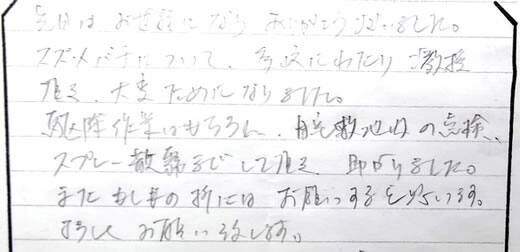 先日はお世話になりありがとうございました。
スズメバチについて、多岐にわたりご教授
頂き、大変ためになりました。
駆除作業はもちろん、自宅敷地内の点検、
スプレー散霧までして頂き、助かりました。
またもしもの折にはお願いすると思います。
お願い致します。